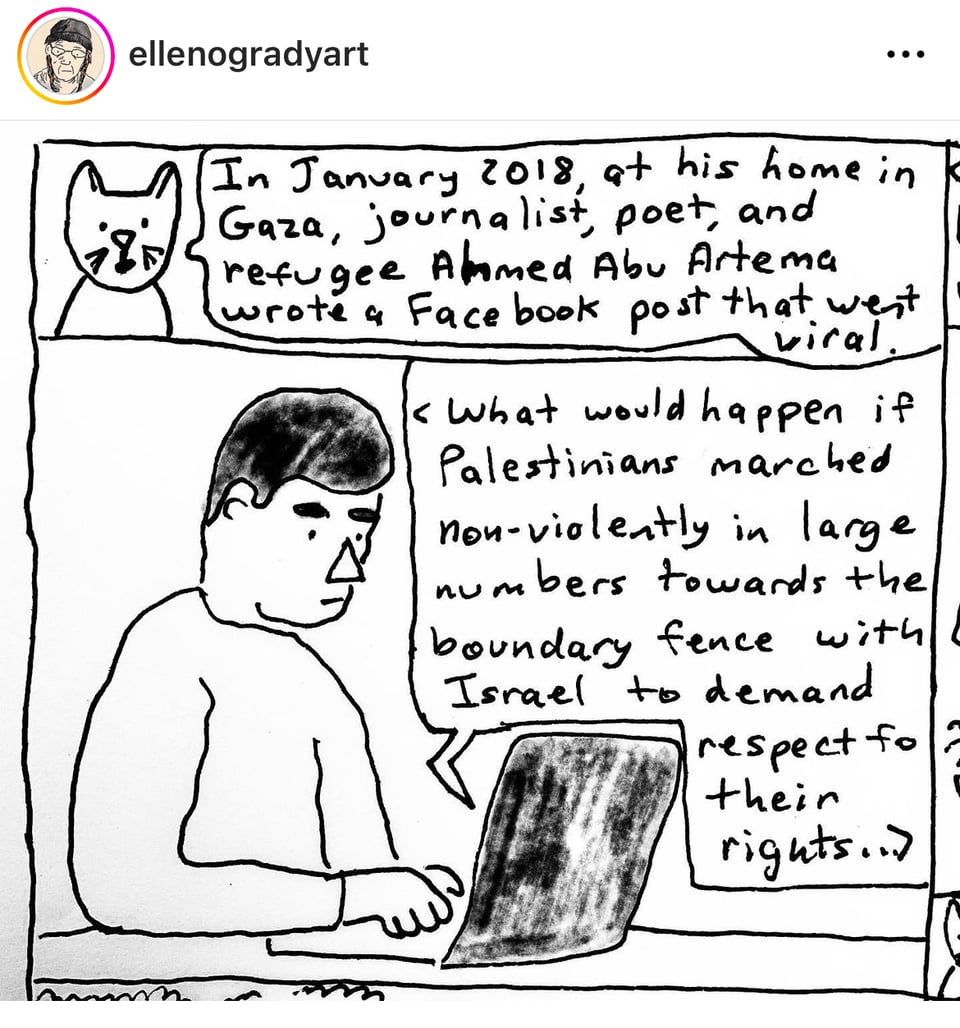 ellenogradyart
In January 2018, at his home in
Gaza, journalist, poet, and
refugee Ahmed Abu Artema
wrote a Facebook post that went
viral.
< What would happen if
Palestinians marched
non-violently in large
numbers towards the
boundary fence with
Israel to demand
respect fo
their
rights...>